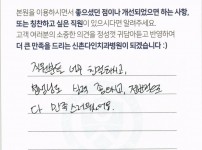 본원을 이용하시면서 좋으셨던 점이나 개선되었으면 하는 사항,
또는 칭찬하고 싶은 직원이 있으시다면 알려주세요.
고객 여러분의 소중한 의견을 정성껏 귀담아듣고 반영하며
더 큰 만족을 드리는 신촌다인치과병원이 되겠습니다 :)
직원분들 너무 친절하시고,
너무 좋아요, 전체적으로
다 만족스러웠어요.